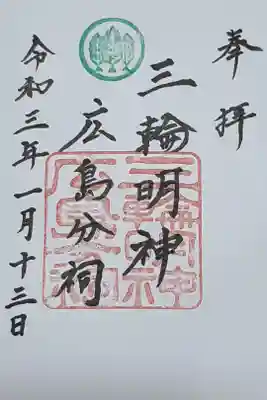 奉拝
三輪明神
広島分祠
令和三年一月十三日